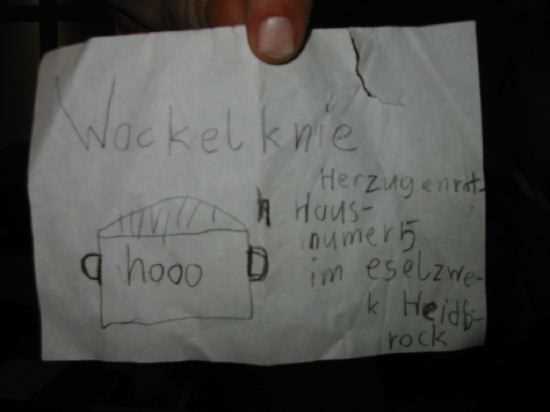 Wackelknie
Herzugenrat-
h Haus-
numer 5
im eselzwe-
k Heidb-
rock
hooo